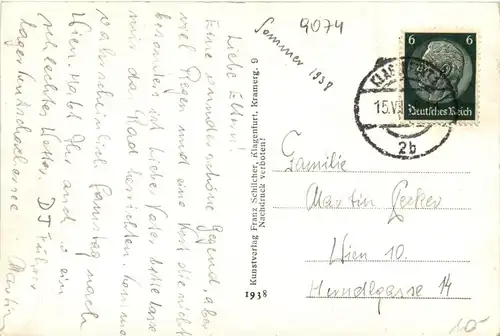 9074
Sommer 1938
Liebe Eltern!
Eine wunderschöne Gegend, aber
viel Regen und eine Kost die nicht
besonders ist. Lieber Vater bitte lasse
mir das Rad herrichten. Komme
wahrscheinlich Samstag nach
Wien. Habt Ihr auch so ein
schlechtes Wetter. DJ Führer
Lager Keutschachersee. Martin
Kunstverlag Franz Schilcher, Klagenfurt, Kramerg. 9
Nachdruck verboten!
1938
6 6
Deutsches Reich
KLAGENFURT
15.VI
2b
Familie
Martin Gecker
Wien 10.
Herndlgasse 14
10-